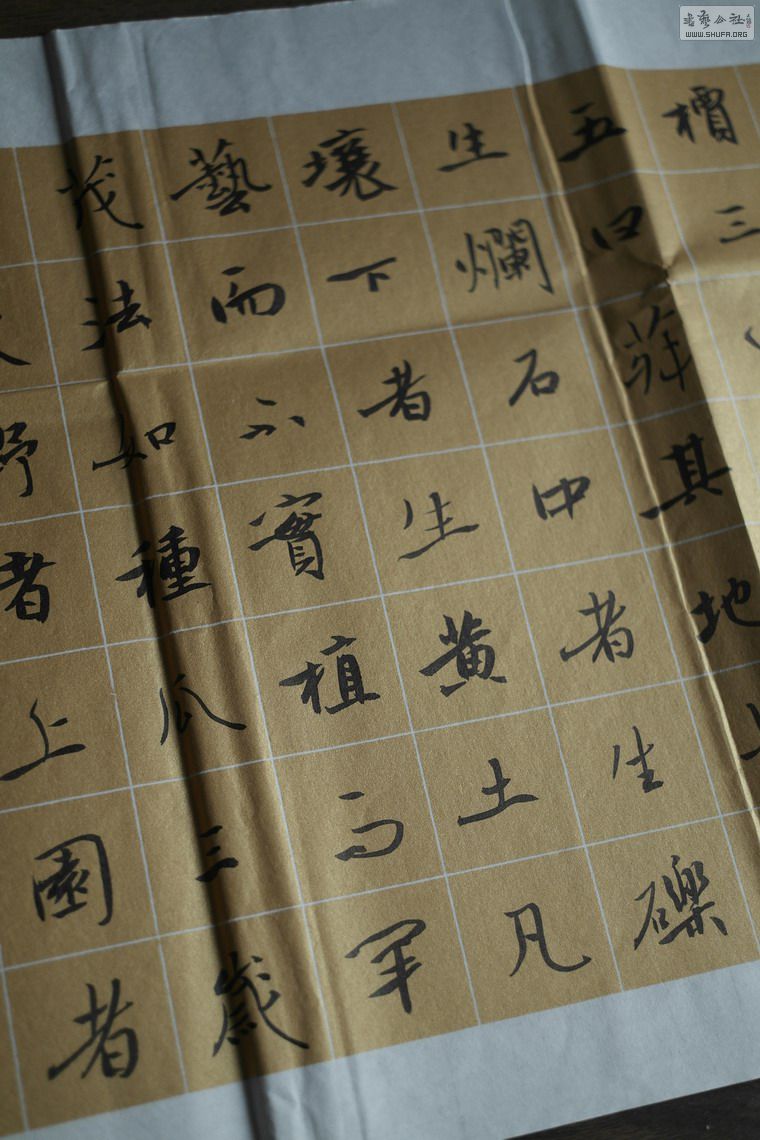 檟三
五曰荈其地
生爛石中者生礫
壤下者生黃土凡
藝而不實植而罕
茂法如種瓜三歲
野者上園者
書藝公社
WWW.SHUFA.ORG